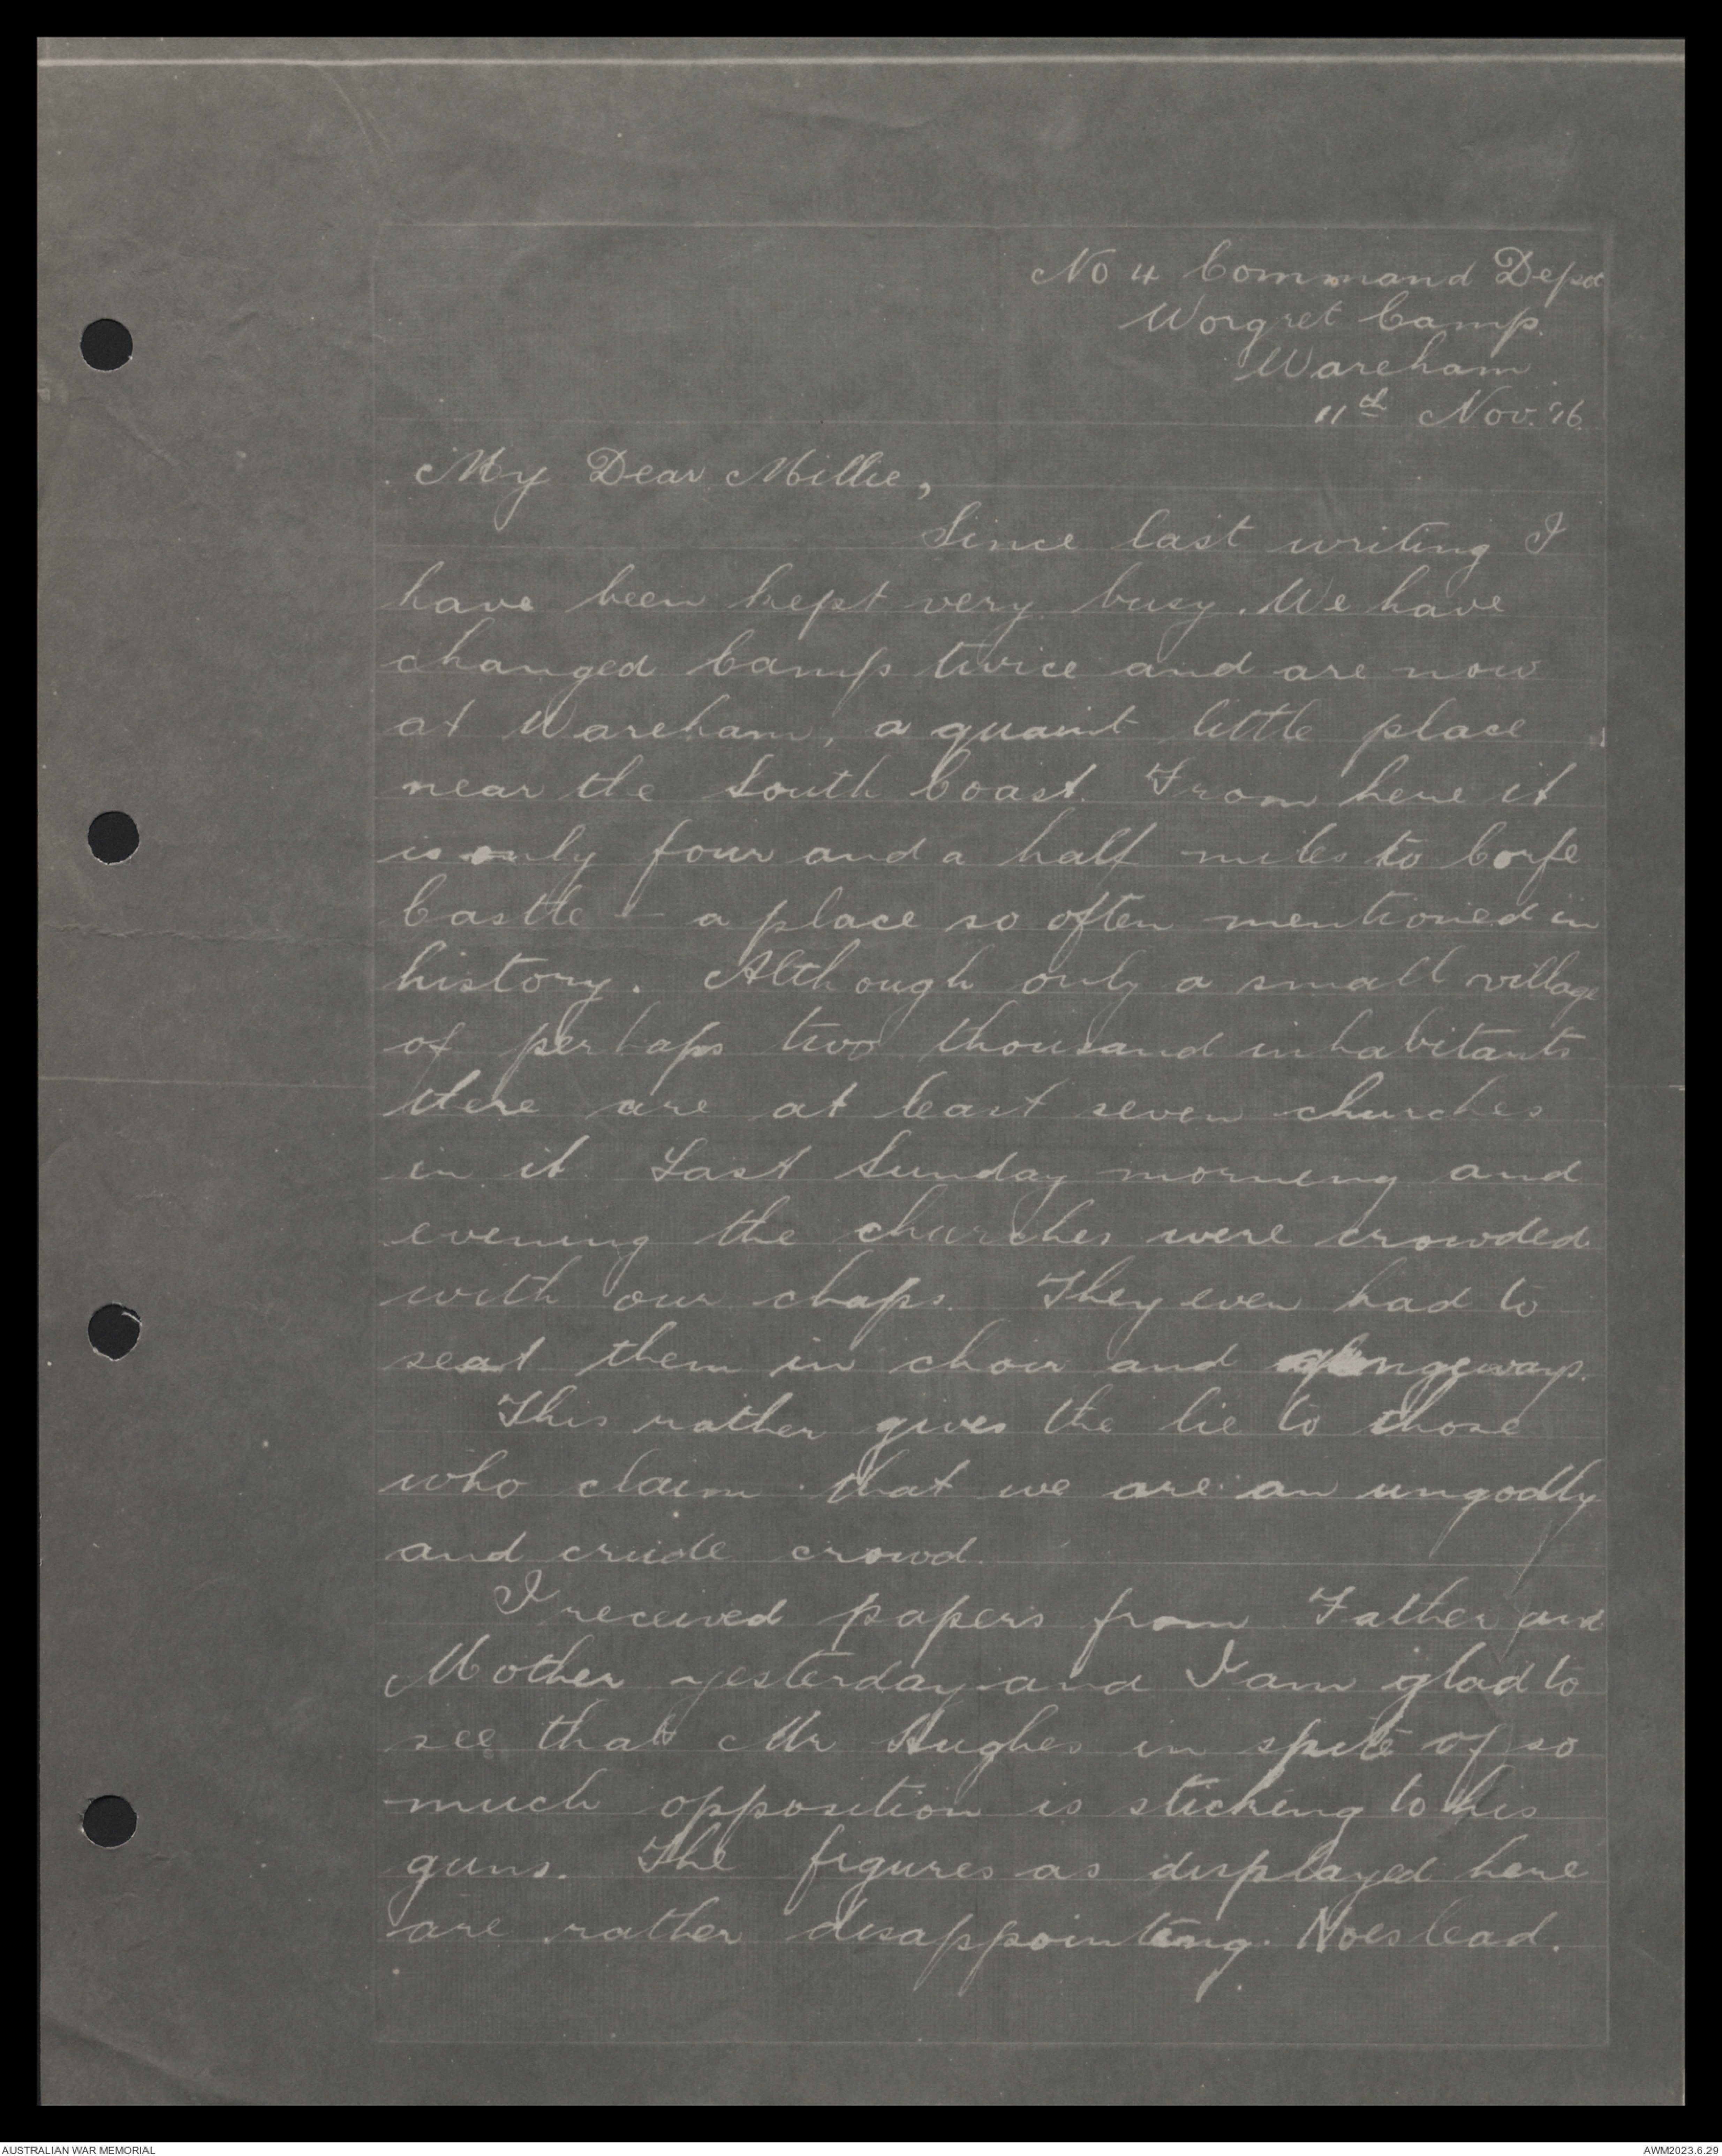 No 4 Command Depot
Worgret Camp.
Wareham.
11th Nov. '16.
My Dear Millie,
Since last writing I
have been kept very busy. We have
changed Camp twice and are now
at Wareham, a quaint little place
near the South Coast. From here it
is only four and a half miles to Corfe
Castle - a place so often mentioned in
history. Although only a small village
of perhaps two thousand inhabitants
there are at least seven churches
in it. Last Sunday morning and
evening the churches were crowded
with our chaps. They even had to
seat them in choir and
This rather gives the lie to those
who claim that we are an ungodly
and crude crowd.
I received papers from Father and
Mother yesterday and I am glad to
see that Mr Hughes in spite of so
much opposition is sticking to his
guns. The figures as displayed here
are rather disappointing. Noes lead.
AUSTRALIAN WAR MEMORIAL
AWM2023.6.29